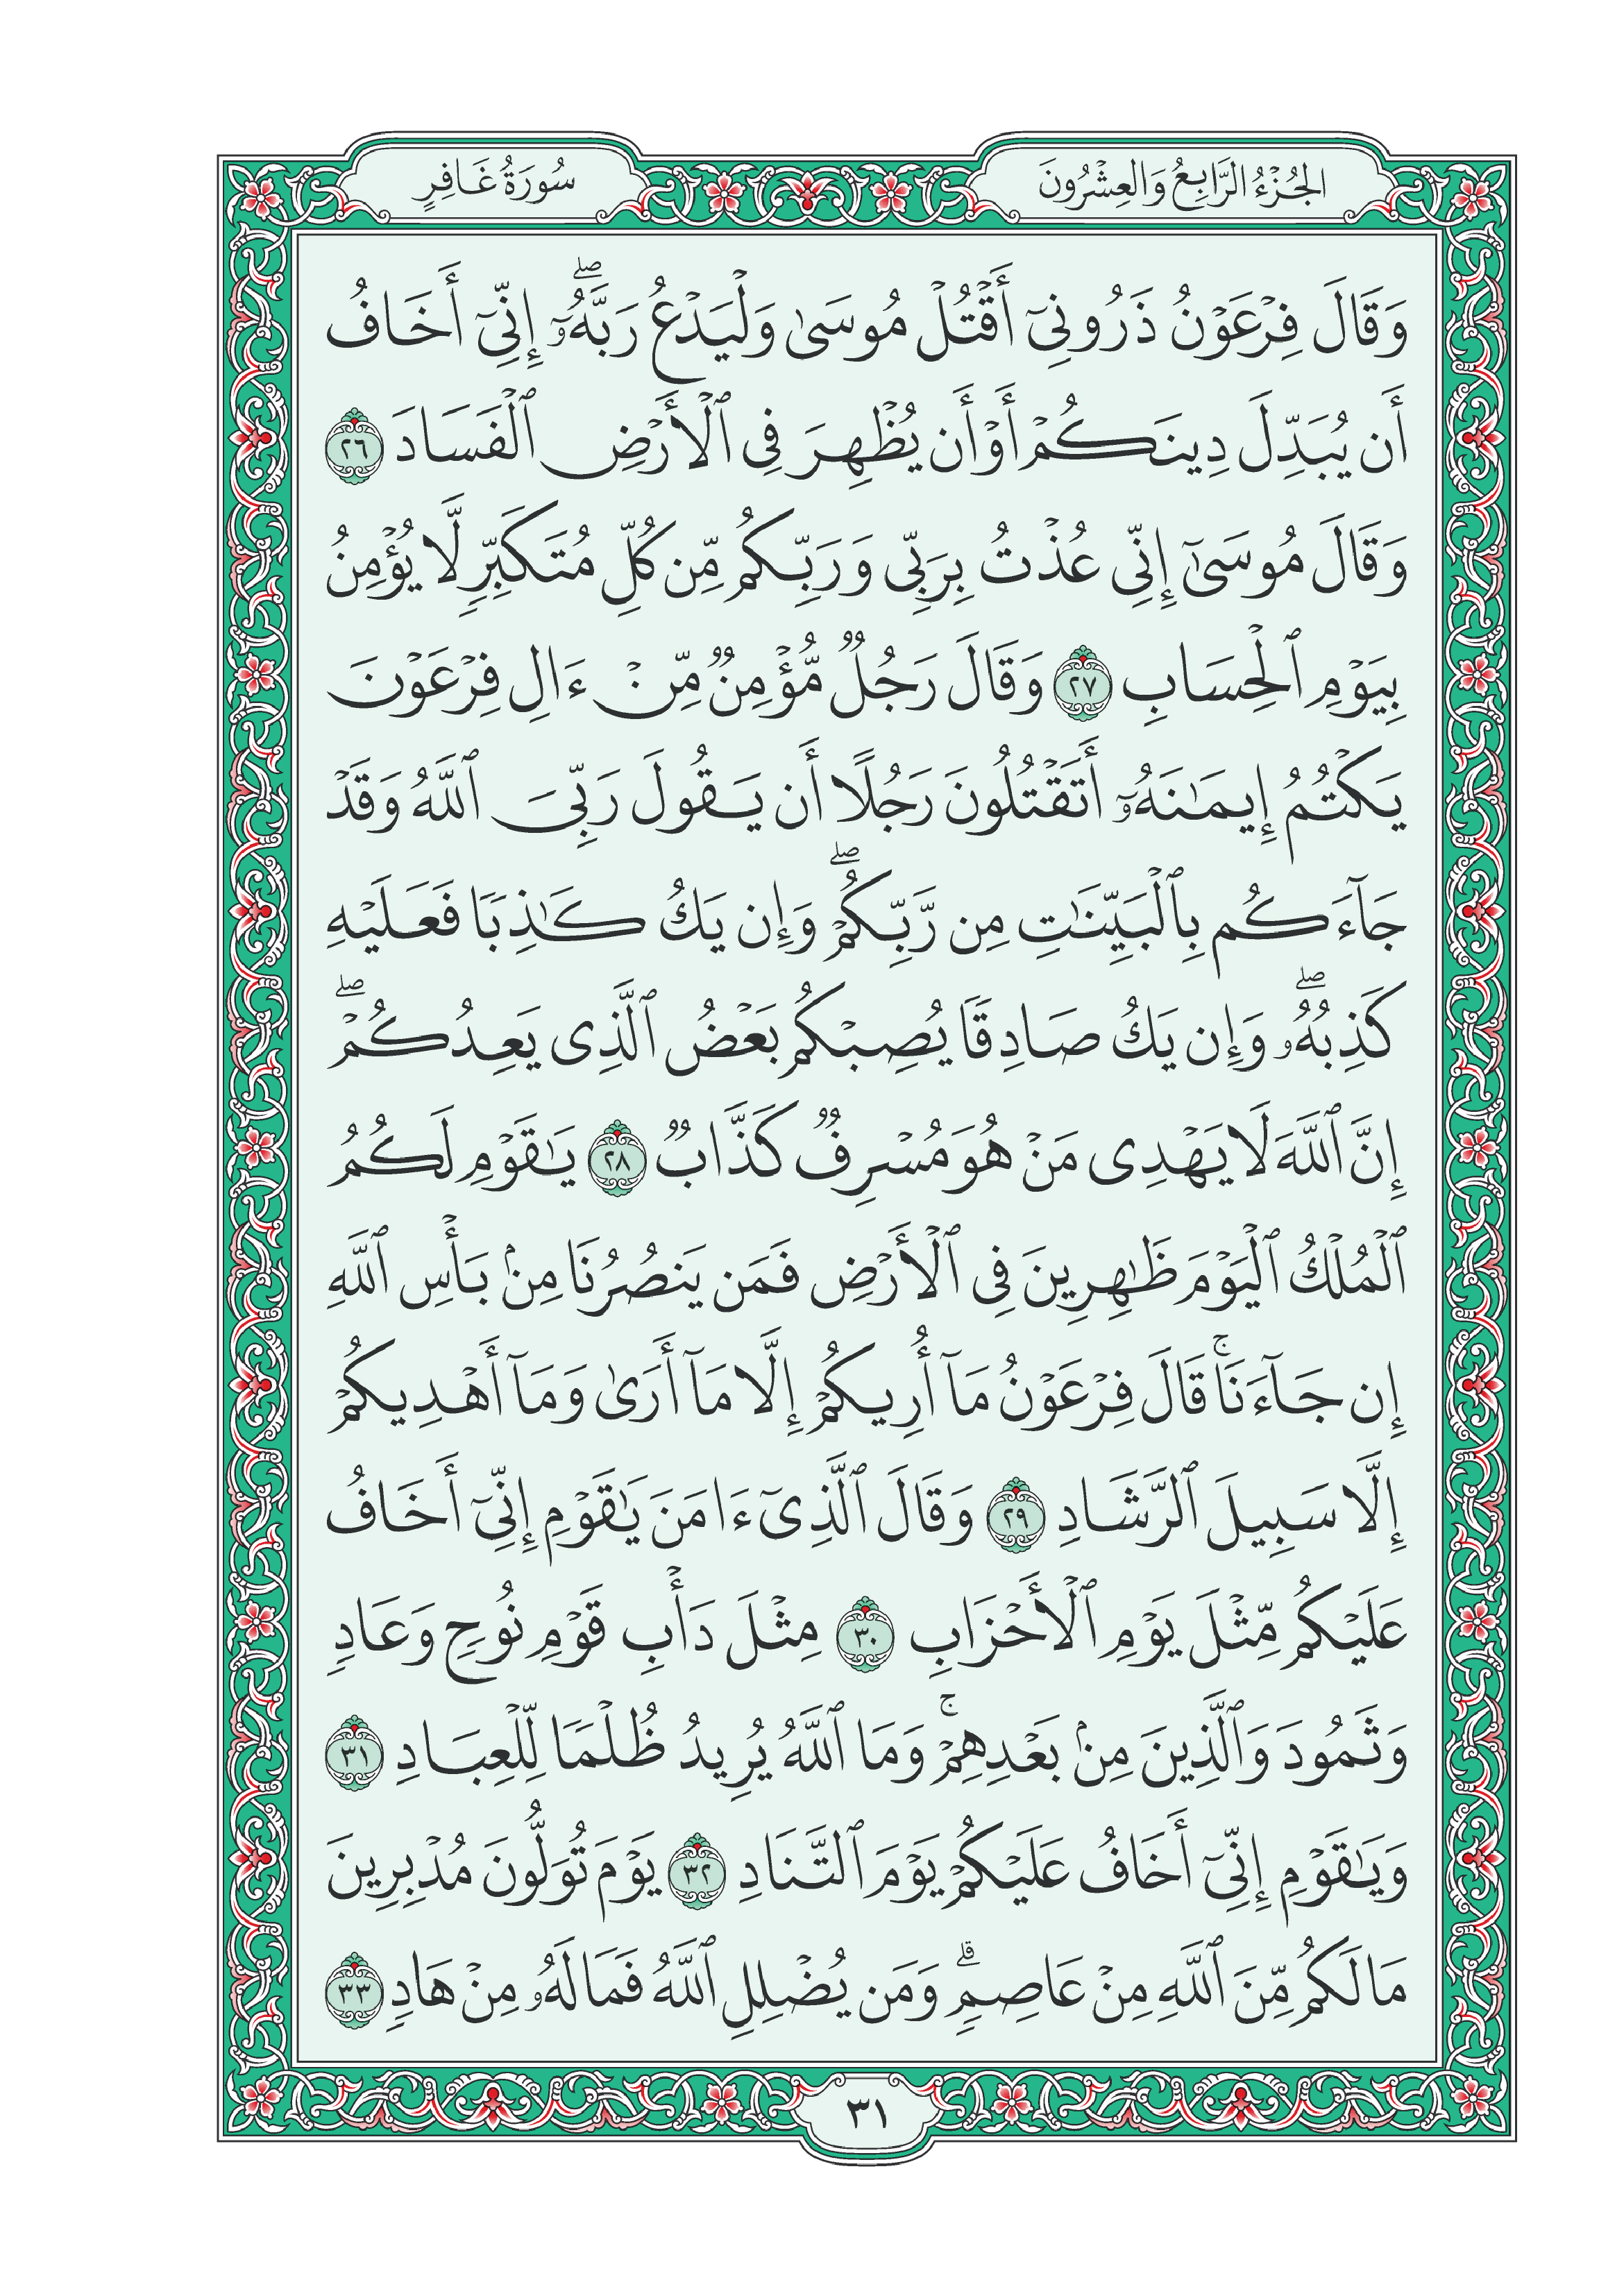 الجُزْءُ الرَّابِعُ وَالعِشْرُونَ
سُورَةُ غَافِرٍ
وَقَالَ فِرْعَوْنُ ذَرُونِيٓ أَقْتُلْ مُوسَىٰ وَلْيَدْعُ رَبَّهُۥٓۖ إِنِّيٓ أَخَافُ
أَن يُبَدِّلَ دِينَكُمْ أَوْ أَن يُظْهِرَ فِي ٱلْأَرْضِ ٱلْفَسَادَ ٢٦
وَقَالَ مُوسَىٰٓ إِنِّي عُذْتُ بِرَبِّي وَرَبِّكُم مِّن كُلِّ مُتَكَبِّرٍ لَّا يُؤْمِنُ
بِيَوْمِ ٱلْحِسَابِ ٢٧ وَقَالَ رَجُلٌ مُّؤْمِنٌ مِّنْ ءَالِ فِرْعَوْنَ
يَكْتُمُ إِيمَٰنَهُۥٓ أَتَقْتُلُونَ رَجُلًا أَن يَقُولَ رَبِّيَ ٱللَّهُ وَقَدْ
جَآءَكُم بِٱلْبَيِّنَٰتِ مِن رَّبِّكُمْۖ وَإِن يَكُ كَٰذِبًا فَعَلَيْهِ
كَذِبُهُۥۖ وَإِن يَكُ صَادِقًا يُصِبْكُم بَعْضُ ٱلَّذِي يَعِدُكُمْۖ
إِنَّ ٱللَّهَ لَا يَهْدِي مَنْ هُوَ مُسْرِفٌ كَذَّابٌ ٢٨ يَٰقَوْمِ لَكُمُ
ٱلْمُلْكُ ٱلْيَوْمَ ظَٰهِرِينَ فِي ٱلْأَرْضِ فَمَن يَنصُرُنَا مِنۢ بَأْسِ ٱللَّهِ
إِن جَآءَنَاۚ قَالَ فِرْعَوْنُ مَآ أُرِيكُمْ إِلَّا مَآ أَرَىٰ وَمَآ أَهْدِيكُمْ
إِلَّا سَبِيلَ ٱلرَّشَادِ ٢٩ وَقَالَ ٱلَّذِيٓ ءَامَنَ يَٰقَوْمِ إِنِّيٓ أَخَافُ
عَلَيْكُم مِّثْلَ يَوْمِ ٱلْأَحْزَابِ ٣٠ مِثْلَ دَأْبِ قَوْمِ نُوحٍ وَعَادٍ
وَثَمُودَ وَٱلَّذِينَ مِنۢ بَعْدِهِمْۚ وَمَا ٱللَّهُ يُرِيدُ ظُلْمًا لِّلْعِبَادِ ٣١
وَيَٰقَوْمِ إِنِّيٓ أَخَافُ عَلَيْكُمْ يَوْمَ ٱلتَّنَادِ ٣٢ يَوْمَ تُوَلُّونَ مُدْبِرِينَ
مَا لَكُم مِّنَ ٱللَّهِ مِنْ عَاصِمٍۗ وَمَن يُضْلِلِ ٱللَّهُ فَمَا لَهُۥ مِنْ هَادٍ ٣٣
٣١